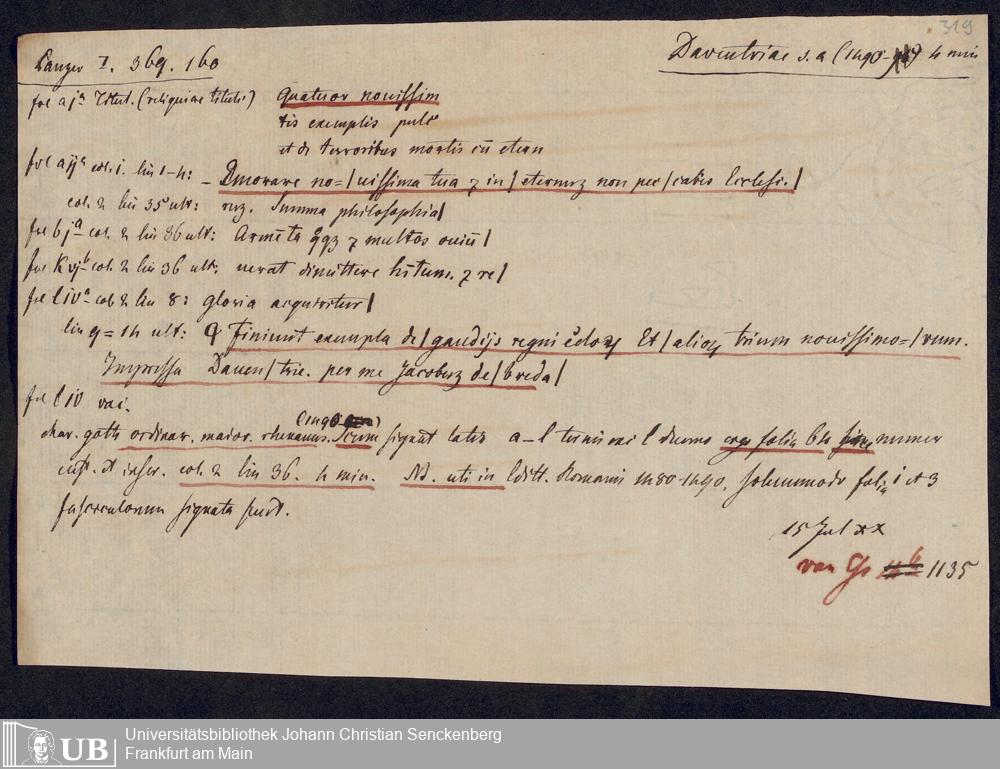 319
Panzer I. 369. 160
Daventriae s. a (1490- ) 4 min
fol aja Titul. (reliquiae tituli) Quatuor nouissim
tis exemplis pulc
et de terroribus mortis cū etern
fol aija col. 1. lin 1-4: Memorare no=/uissima tua ⁊ in/ eternuz non pec/cabis Ecclesi./
col. 2 lin 35 ult: ruz. Summa philosophia/
fol bja col. 2 lin 36 ult: Armēta ⁊ multos ouiū/
fol kvjb col. 2 lin 36 ult: uerat dimittere ⁊ re/
fol liva col 2 lin 8: gloria acquiritur/
lin 9=14 ult: Finiunt exempla de/ gaudijs regni Et/ trium nouissimo=/rum.
Impressa Dauen/trie. per me Jacobuz de/ breda/
fol liv vac.
char. goth ordinar. maior. rhenanus. (1490- ) signat a-l
et col. 2 lin 36. 4 min. NB. uti in Editt. Romanis 1480-1490, solummodo folia 1 et 3
fasciculorum signata sunt.
15 Jul xx
van 1135
UB
Universitätsbibliothek Johann Christian Senckenberg
Frankfurt am Main